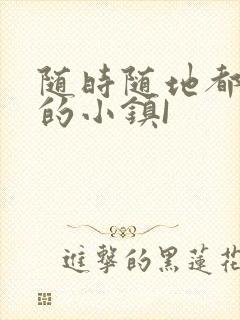 随時随地都
的小鎮1
進擊的黑蓮花